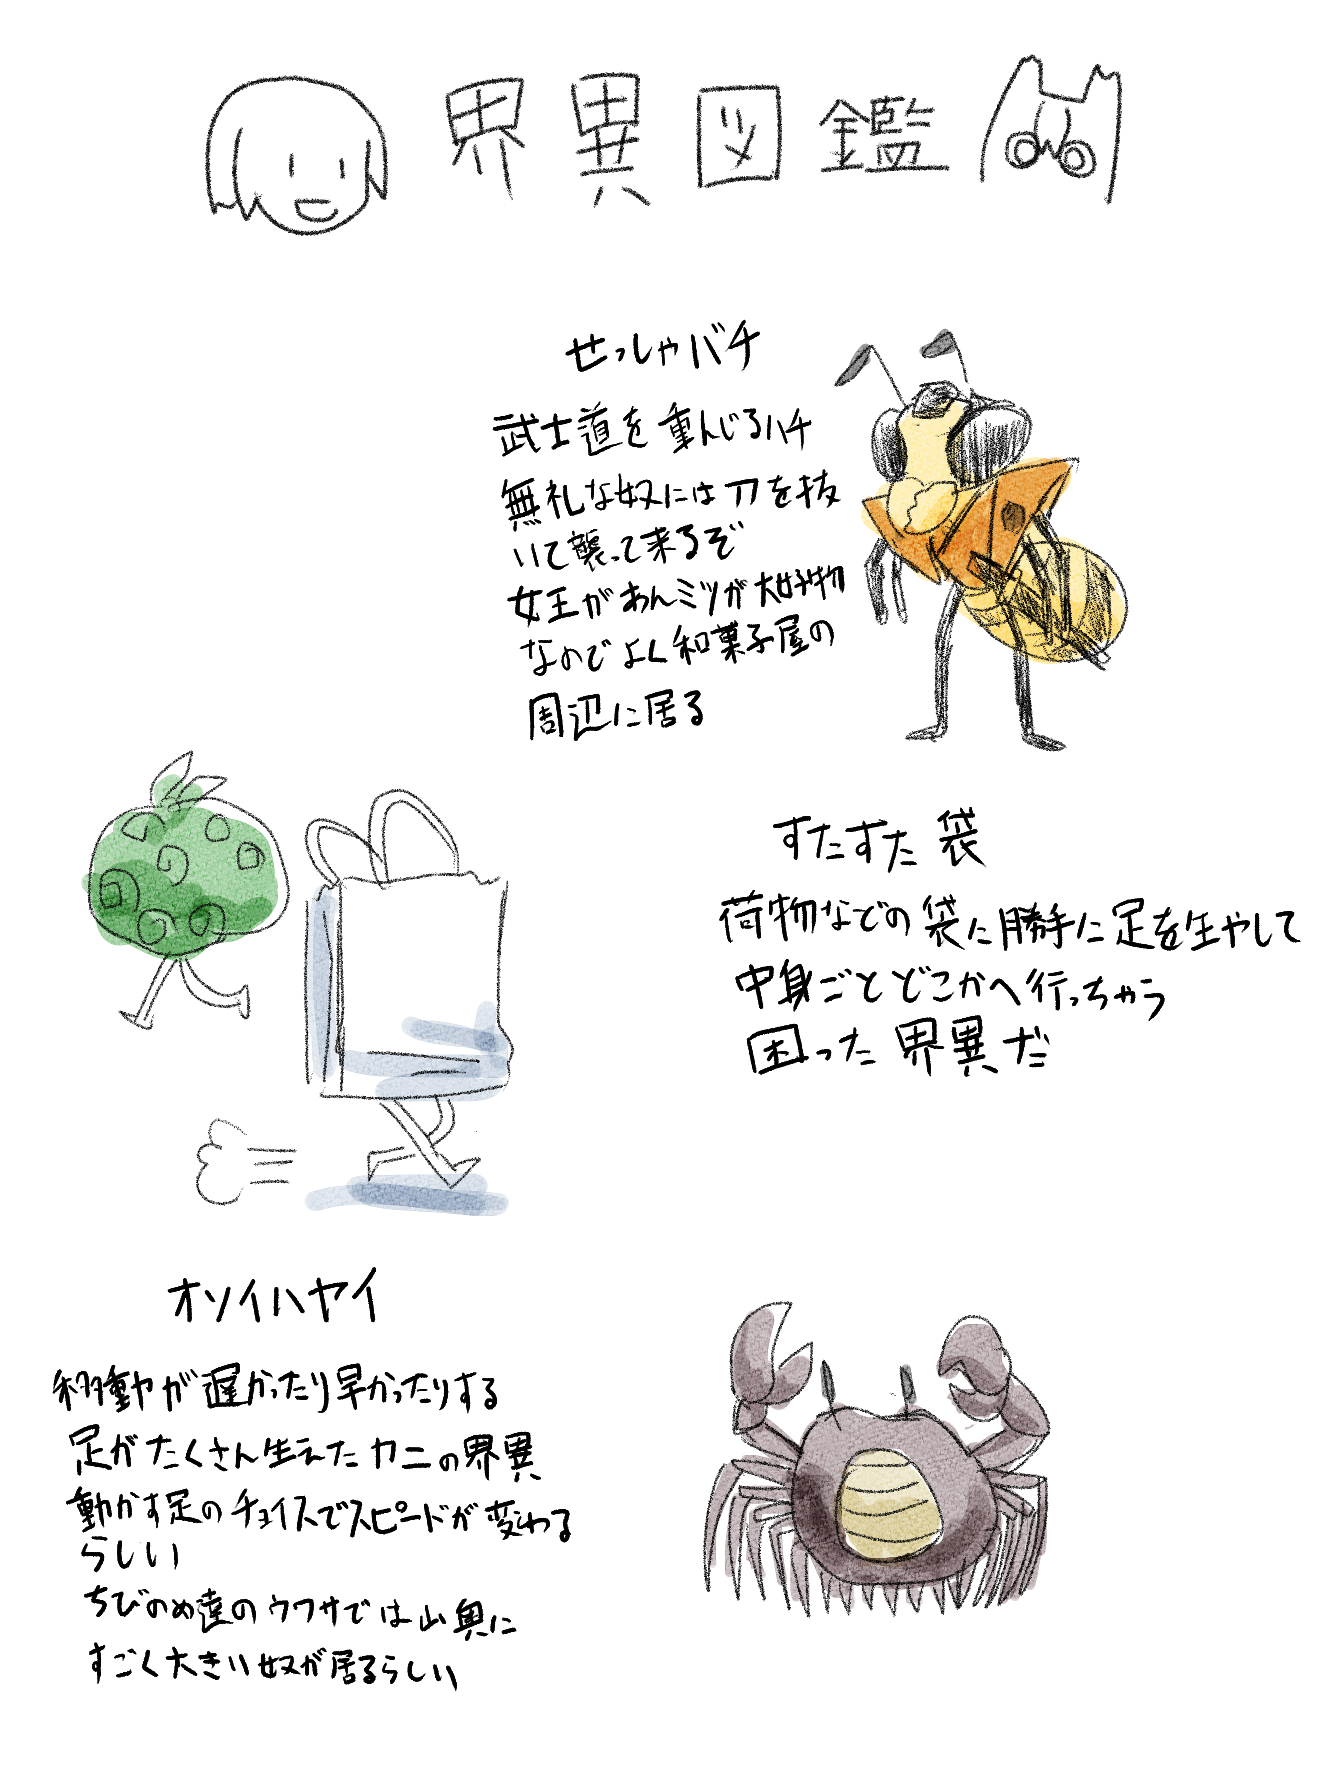 界異図鑑
せっしゃバチ
武士道を重んじるハチ
無礼な奴には刀を抜
いて襲って来るぞ
女王があんミツが大好物
なのでよく和菓子屋の
周辺に居る
すたすた袋
荷物などの袋に勝手に足を生やして
中身ごとどこかへ行っちゃう
困った界異だ
オソイハヤイ
移動が遅かったり早かったりする
足がたくさん生えたカニの界異
動かす足のチョイスでスピードが変わる
らしい
ちびのめ達のウワサでは山奥に
すごく大きい奴が居るらしい